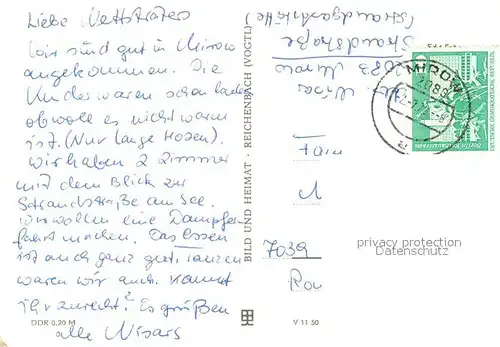 Liebe Nettsträters
Wir sind gut in Mirow
angekommen. Die
Kinder waren schon baden
obwohl es nicht warm
ist. (Nur lange Hosen).
Wir haben 2 Zimmer
mit dem Blick zur
Strandstraße am See.
Wir wollen eine Dampfer-
fahrt machen. Das Essen
ist auch ganz gut. Tanzen
waren wir auch. Kommt
ihr zurecht? Es grüßen
alle
DDR 0,20 M
BILD UND HEIMAT · REICHENBACH (VOGTL)
V 11 50
(Strandgaststätte)
Strandstraße
2083 Mirow
MIROW
Fam
7039
privacy protection
Datenschutz